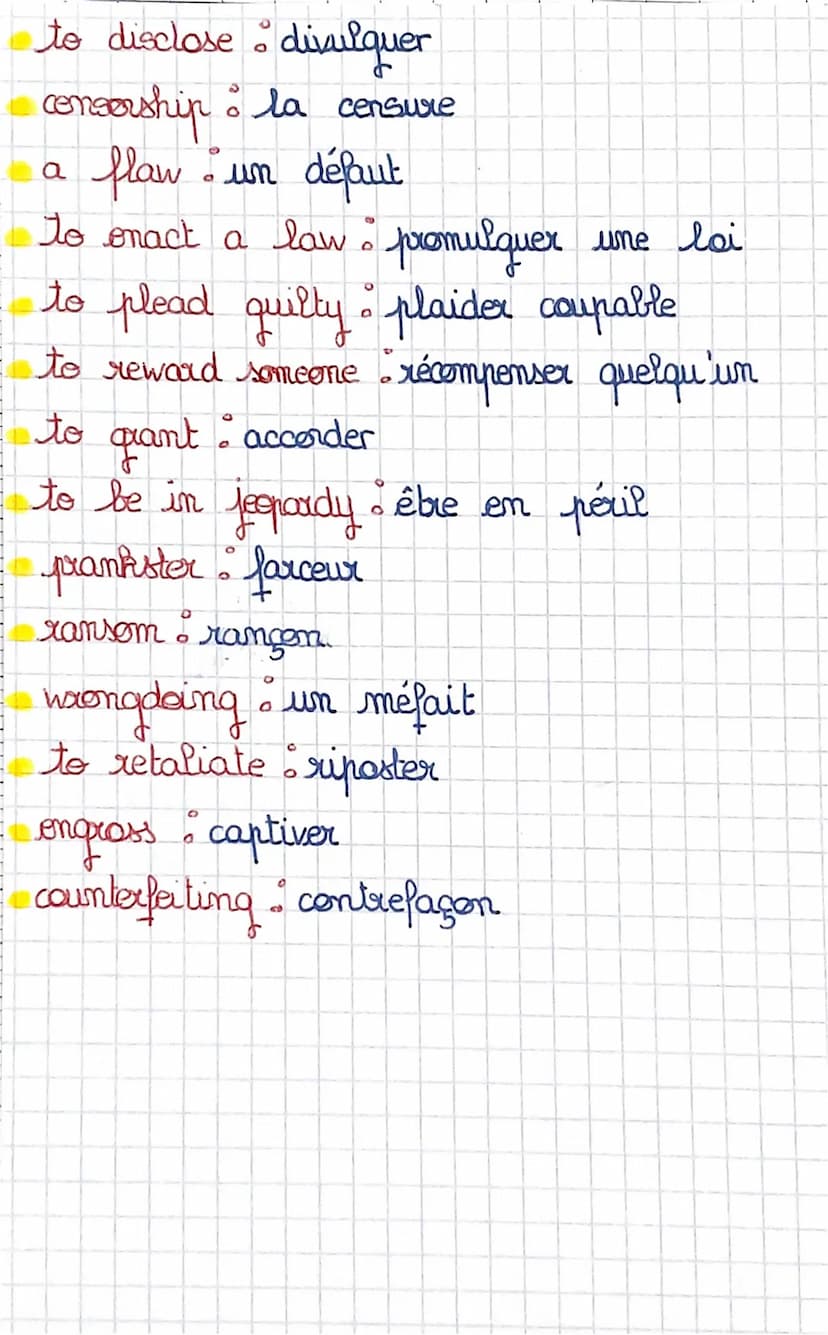 to disclose : divulguer
censorship : la censure
a flaw : un défaut
to enact a law : promulguer une loi
to plead guilty : plaider coupable
to reward someone : récompenser quelqu'un
to grant : accorder
to be in jeopardy : être en péril
prankster : farceur
ransom : rançon
wrongdoing : un méfait
to retaliate : riposter
engross : captiver
counterfeiting : contrefaçon